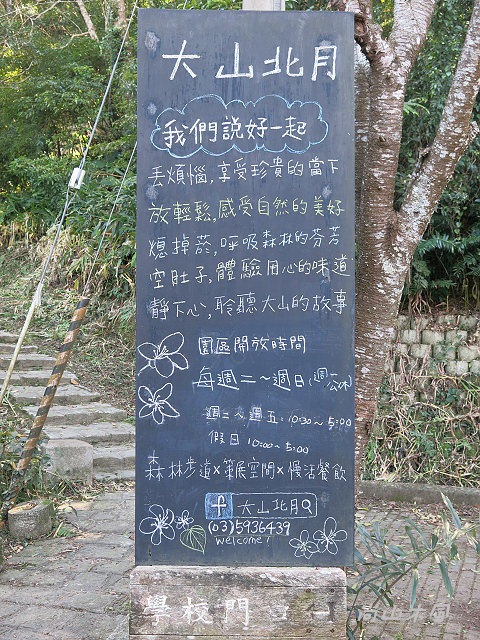 大山北月
我們說好一起
丟煩惱,享受珍貴的當下
放輕鬆,感受自然的美好
熄掉菸,呼吸森林的芬芳
空肚子,體驗用心的味道
靜下心,聆聽大山的故事
園區開放時間
每週二~週日(週一公休)
週二~週五:10:30~5:00
假日 10:00~5:00
森林步道x策展空間x慢活餐飲
f 大山北月
(03)5936439
welcome!
學校門口